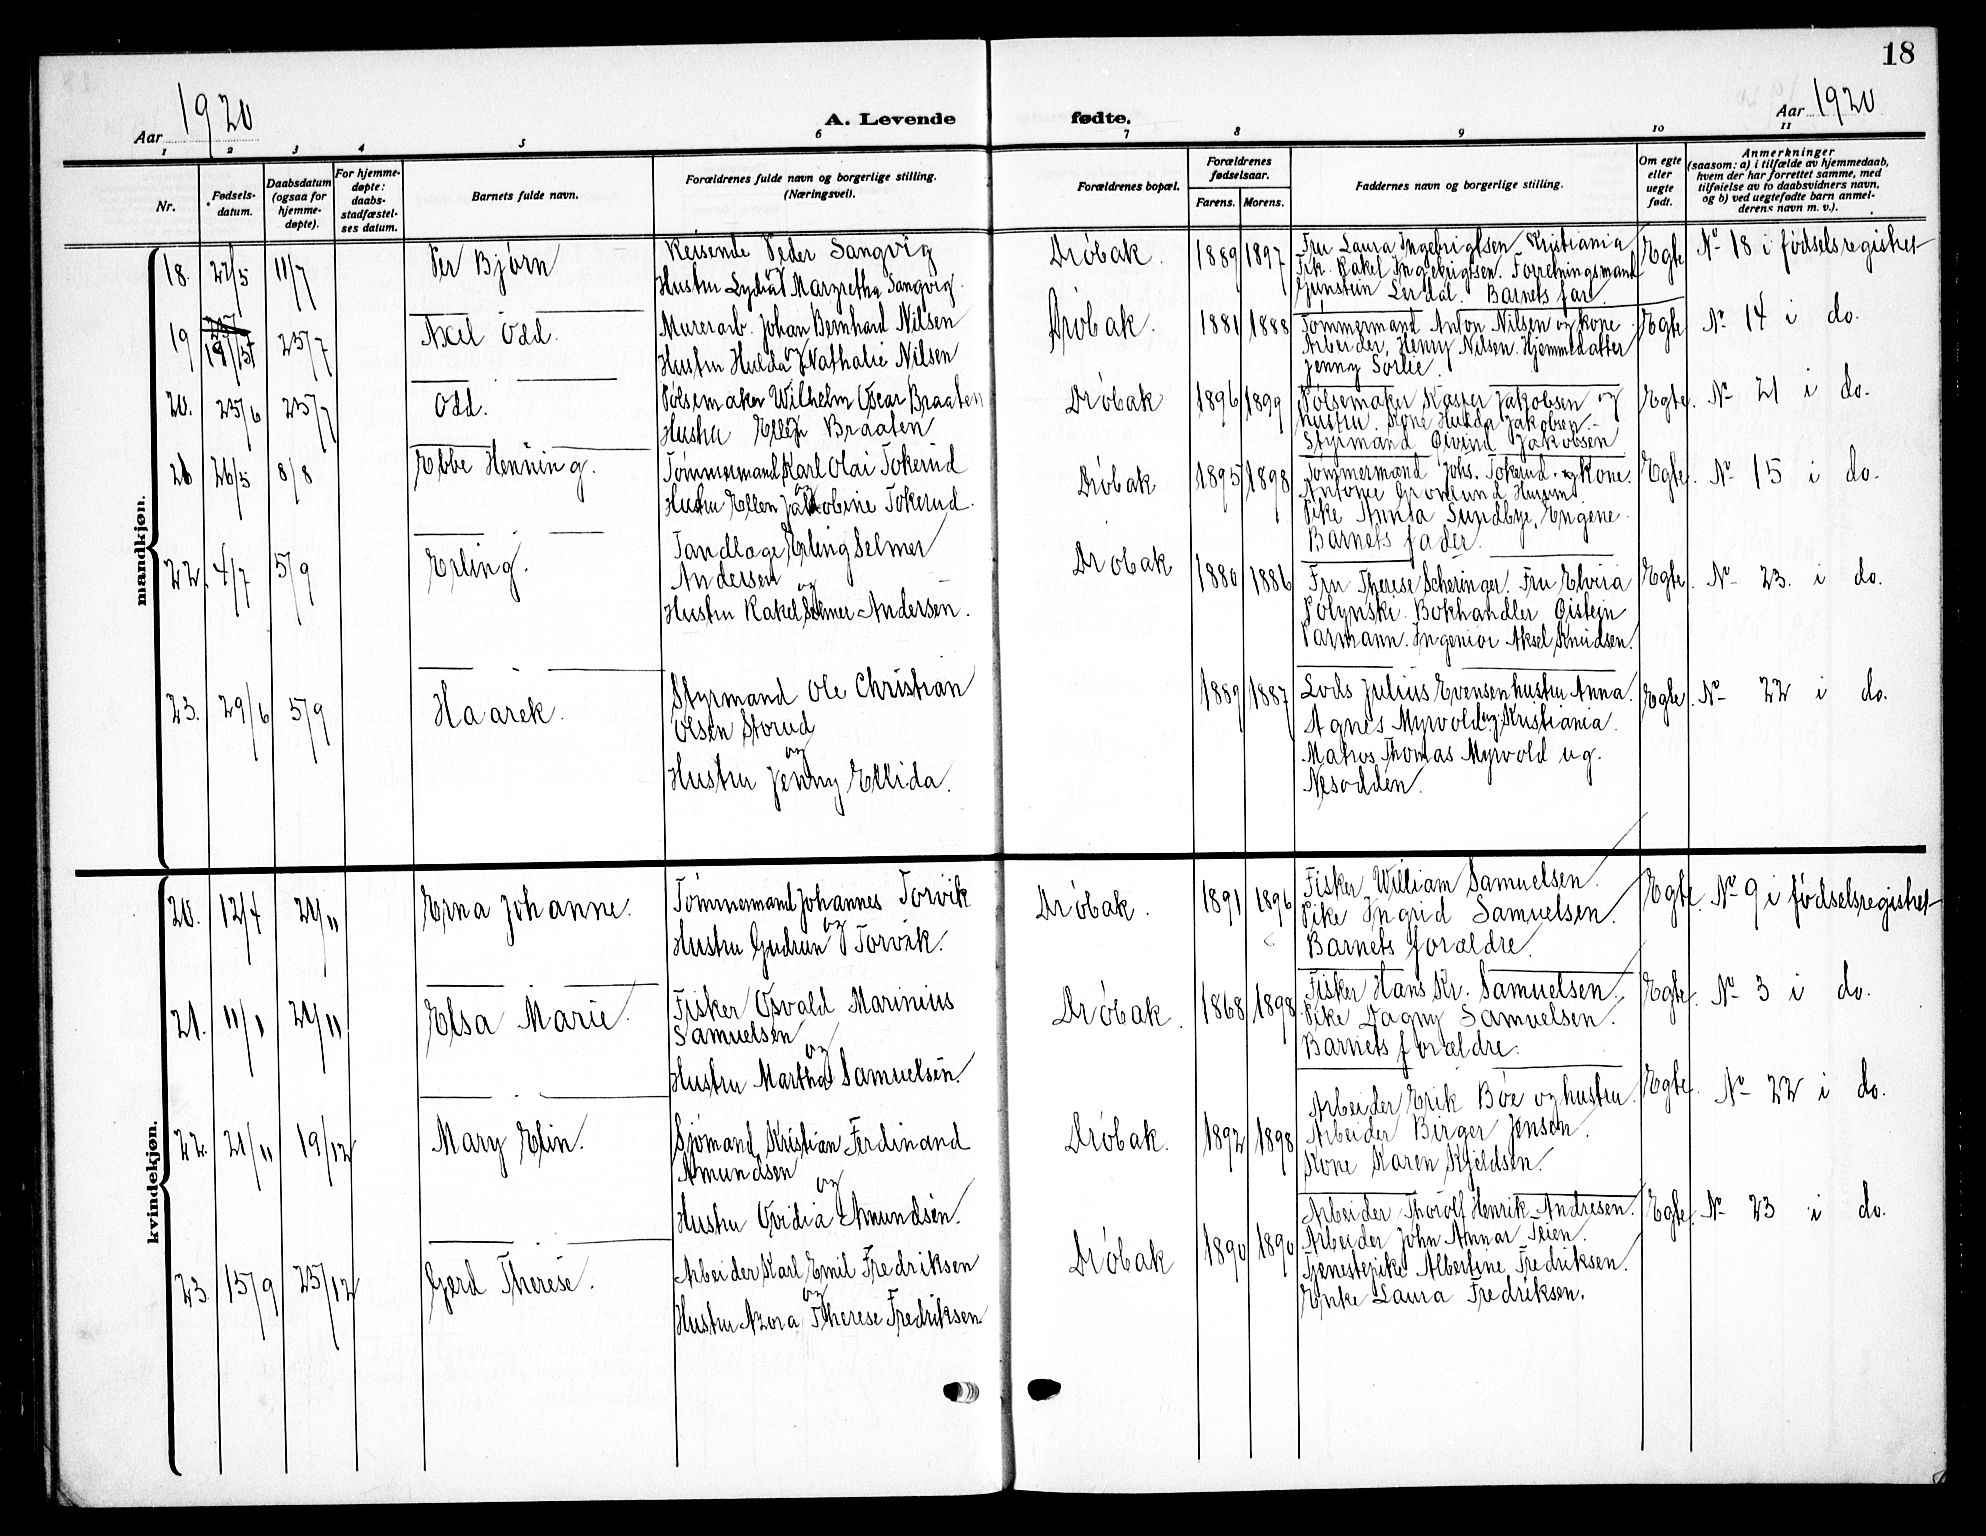 18
Aar 1920
A. Levende fødte.
Aar 1920
1 2 3 4 5 6 7 8 9 10 11
Nr.
Fødsels-
datum.
Daabsdatum
(ogsaa for
hjemme-
døpte).
For hjemme-
døpte:
daabs-
stadfæstel-
ses datum.
Barnets fulde navn.
Forældrenes fulde navn og borgerlige stilling.
(Næringsvei).
Forældrenes bopæl.
Forældrenes
fødselsaar.
Farens. Morens.
Faddernes navn og borgerlige stilling.
Om egte
eller
uegte
født.
Anmerkninger
(saasom: a) i tilfælde av hjemmedaab,
hvem der har forrettet samme, med
tilføielse av to daabsvidners navn,
og b) ved uegtefødte barn anmel-
derens navn m. v.).
mandkjøn.
18. 22/5 11/7 Per Bjørn
Reisende Peder Sangvig
og
Hustru Lydia Margretha Sangvig.
Drøbak. 1889 1897
Fru Laura Ingebrigtsen. Kristiania
Frk. Rakel Ingebrigtsen. Forretningsmand
Gunstein Lerdal. Barnets far.
Egte No 18 i fødselsregistret
19 19/5 25/7 Axel Odd.
Murerarb. Johan Bernhard Nilsen
og
Hustru Hulda Nathalie Nilsen
Drøbak. 1881 1888
Tømmermand Anton Nilsen og kone.
Arbeider, Henry Nilsen. Hjemmedatter
Jenny Sørlie.
Egte No 14 i do.
20. 25/6 25/7 Odd.
Pølsemaker Wilhelm Oscar Braaten
og
Hustru Ellen Braaten
Drøbak 1896 1899
Pølsemaker Kasper Jakobsen og
hustru. Kone Hulda Jakobsen.
Styrmand Øivind Jakobsen
Egte. No 21 i do.
21 26/5 8/8 Ebbe Henning.
Tømmermand Karl Olai Tokerud
og
Hustru Ellen Jakobine Tokerud.
Drøbak 1895 1898
Tømmermand Johs. Tokerud. og Kone.
Antonie Grønlund Husum.
Pike Anna Sundbye, Engene.
Barnets fader.
Egte. No 15 i do.
22. 4/7 5/9 Erling.
Tandlæge Erling Selmer
Andersen
og
Hustru Rakel Selmer Andersen.
Drøbak 1880 1886
Fru Therese Scheringer. Fru Elvira
Polynski. Bokhandler Øistein
Parmann. Ingeniør Aksel Knudsen.
Egte. No 23. i do.
23. 29/6 5/9 Haarek.
Styrmand Ole Christian
Olsen Storud
og
Hustru Jenny Ellida.
1889 1887
Lods Julius Evensen hustru Anna.
Agnes Myrvold ug. Kristiania.
Matros Thomas Myrvold ug.
Nesodden.
Egte. No 22 i do.
kvindekjøn.
20. 12/7 21/11 Erna Johanne.
Tømmermand Johannes Torvik
og
Hustru Gudrun Torvik.
Drøbak. 1891 1896
Fisker William Samuelsen.
Pike Ingrid Samuelsen.
Barnets forældre.
Egte. No 9 i fødselsregistret
21. 11/11 21/11 Elsa Marie.
Fisker Osvald Marinius
Samuelsen
og
Hustru Martha Samuelsen.
Drøbak. 1868 1898
Fisker Hans Kr. Samuelsen.
Pike Dagny Samuelsen.
Barnets forældre.
Egte. No 3 i do.
22. 21/11 19/12 Mary Elin.
Sjømand Kristian Ferdinand
Amundsen
og
Hustru Ovidia Amundsen.
Drøbak. 1892 1898
Arbeider Erik Bøe og hustru.
Arbeider Birger Jensen.
Kone Karen Kjeldsen.
Egte. No 22 i do.
23. 15/9 25/12 Gerd Therese.
Arbeider Karl Emil Fredriksen
og
Hustru Azora Therese Fredriksen
Drøbak 1890 1890
Arbeider Thorolf Henrik Andresen.
Arbeider John Annar Teien.
Tjenestepike Albertine Fredriksen.
Enke Laura Fredriksen.
Egte. No 23 i do.